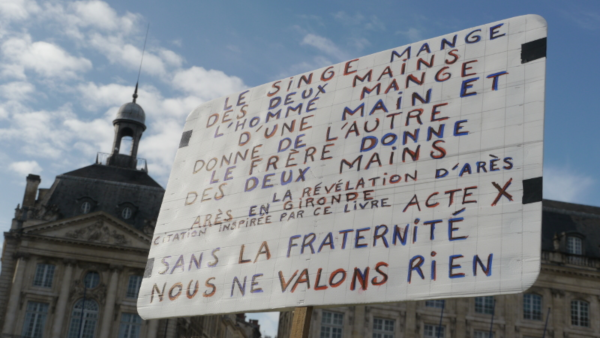 LE SINGE MANGE
DES DEUX MAINS
L'HOMME MANGE
D'UNE MAIN ET
DONNE DE L'AUTRE
LE FRÈRE DONNE
DES DEUX MAINS
LA RÉVÉLATION D'ARÈS
ARÈS EN GIRONDE
CITATION INSPIRÉE PAR CE LIVRE ACTE X
SANS LA FRATERNITÉ
NOUS NE VALONS RIEN